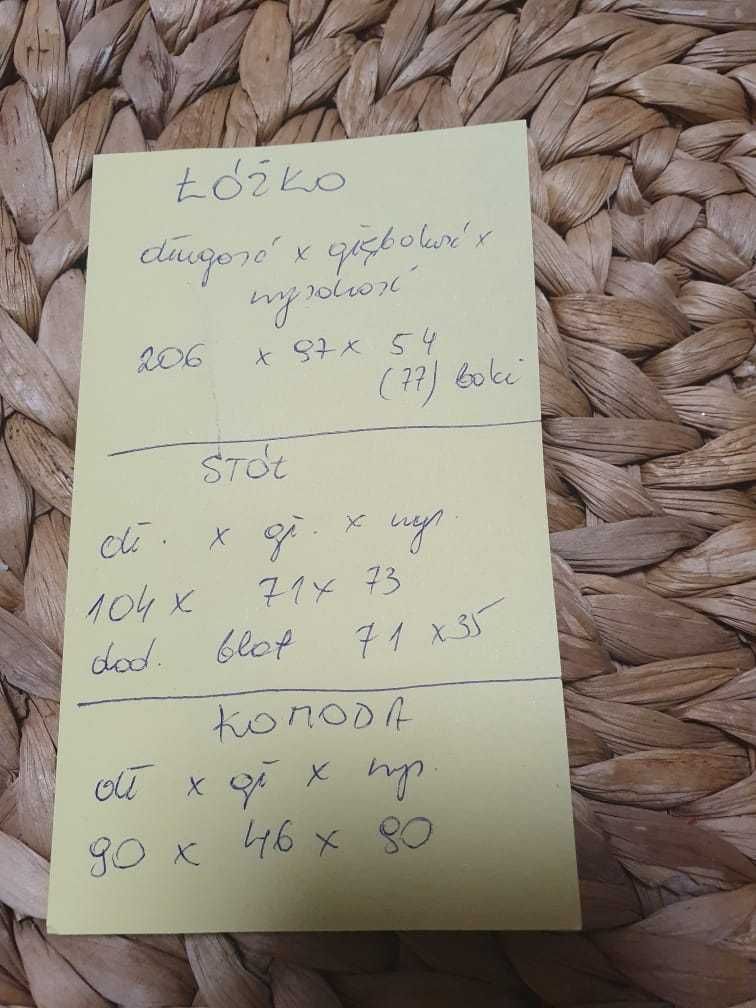 ŁÓŻKO
długość x głębokość x
wysokość
206 x 97 x 54
(77) boki
STÓŁ
dł. x gł. x wys.
104 x 71 x 73
dod. blat 71 x 35
KOMODA
dł x gł x wys.
90 x 46 x 90